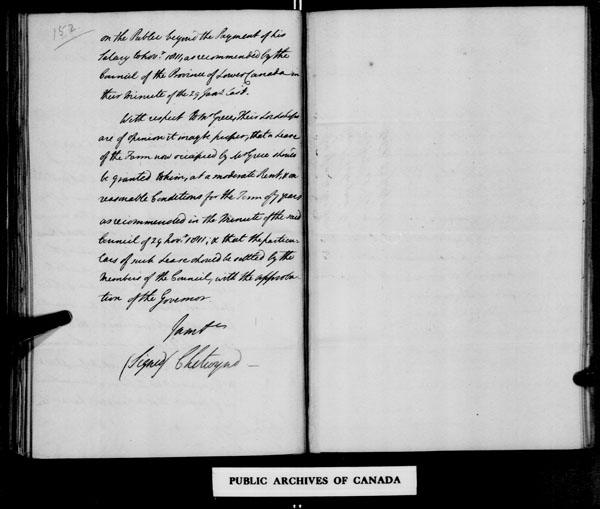 152
on the Public beyond the Payment of his
Salary to Nov.r 1811, as recommended by the
Council of the Province of Lower Canada in
their Minute of the 29 Jan.y last.
With respect to Mr Grece, Their Lordships
are of opinion it may be proper, that a Lease
of the Farm now occupied by Mr Grece should
be granted to him, at a moderate Rent, & on
reasonable Conditions for the Term of 7 years
as recommended in the Minute of the said
Council of 29 Nov.r 1811, & that the particu-
lars of such Lease should be settled by the
Members of the Council, with the approba-
tion of the Governor
I am &c
(Signed) Chetwynd —
PUBLIC ARCHIVES OF CANADA